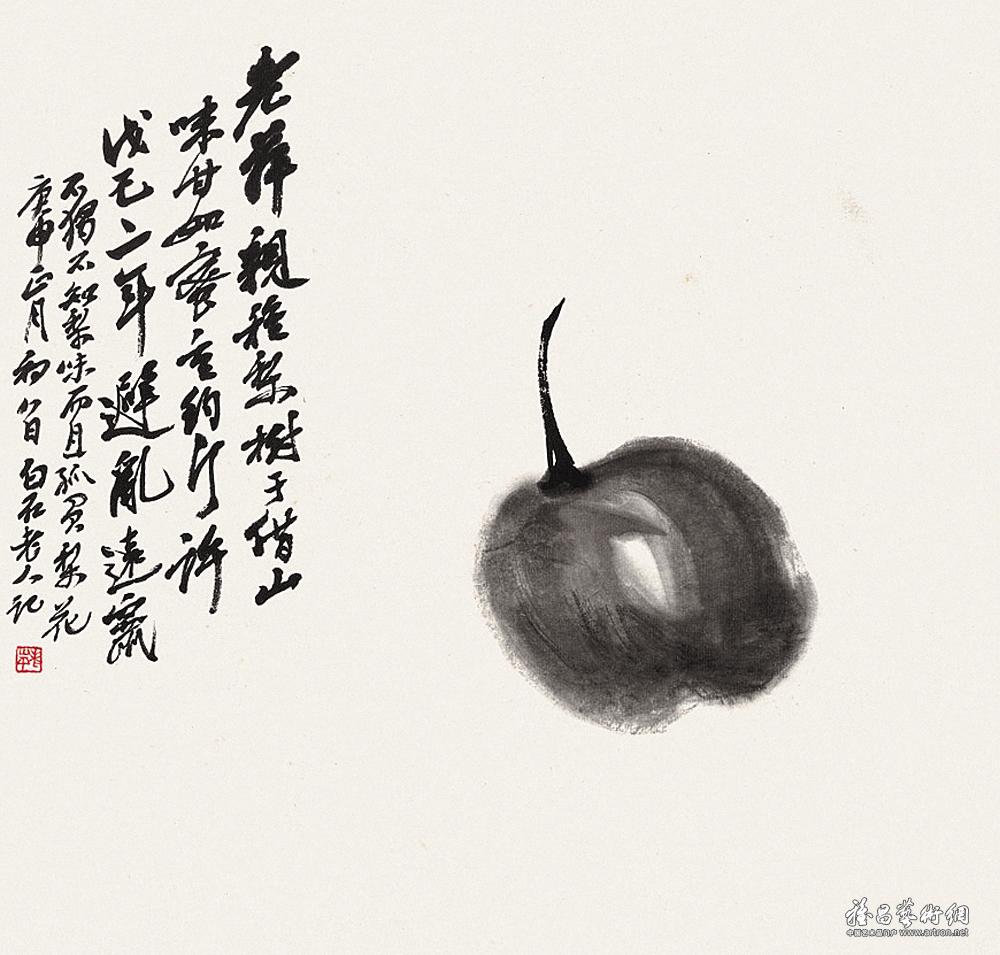 老萍親種梨樹于借山
味甘如蜜重約斤許
戊己二年避亂遠竄
不獨不知梨味而且孤負梨花
庚申正月初八日白石老人記
雅昌藝術網
中国艺术品门户 www.artron.net